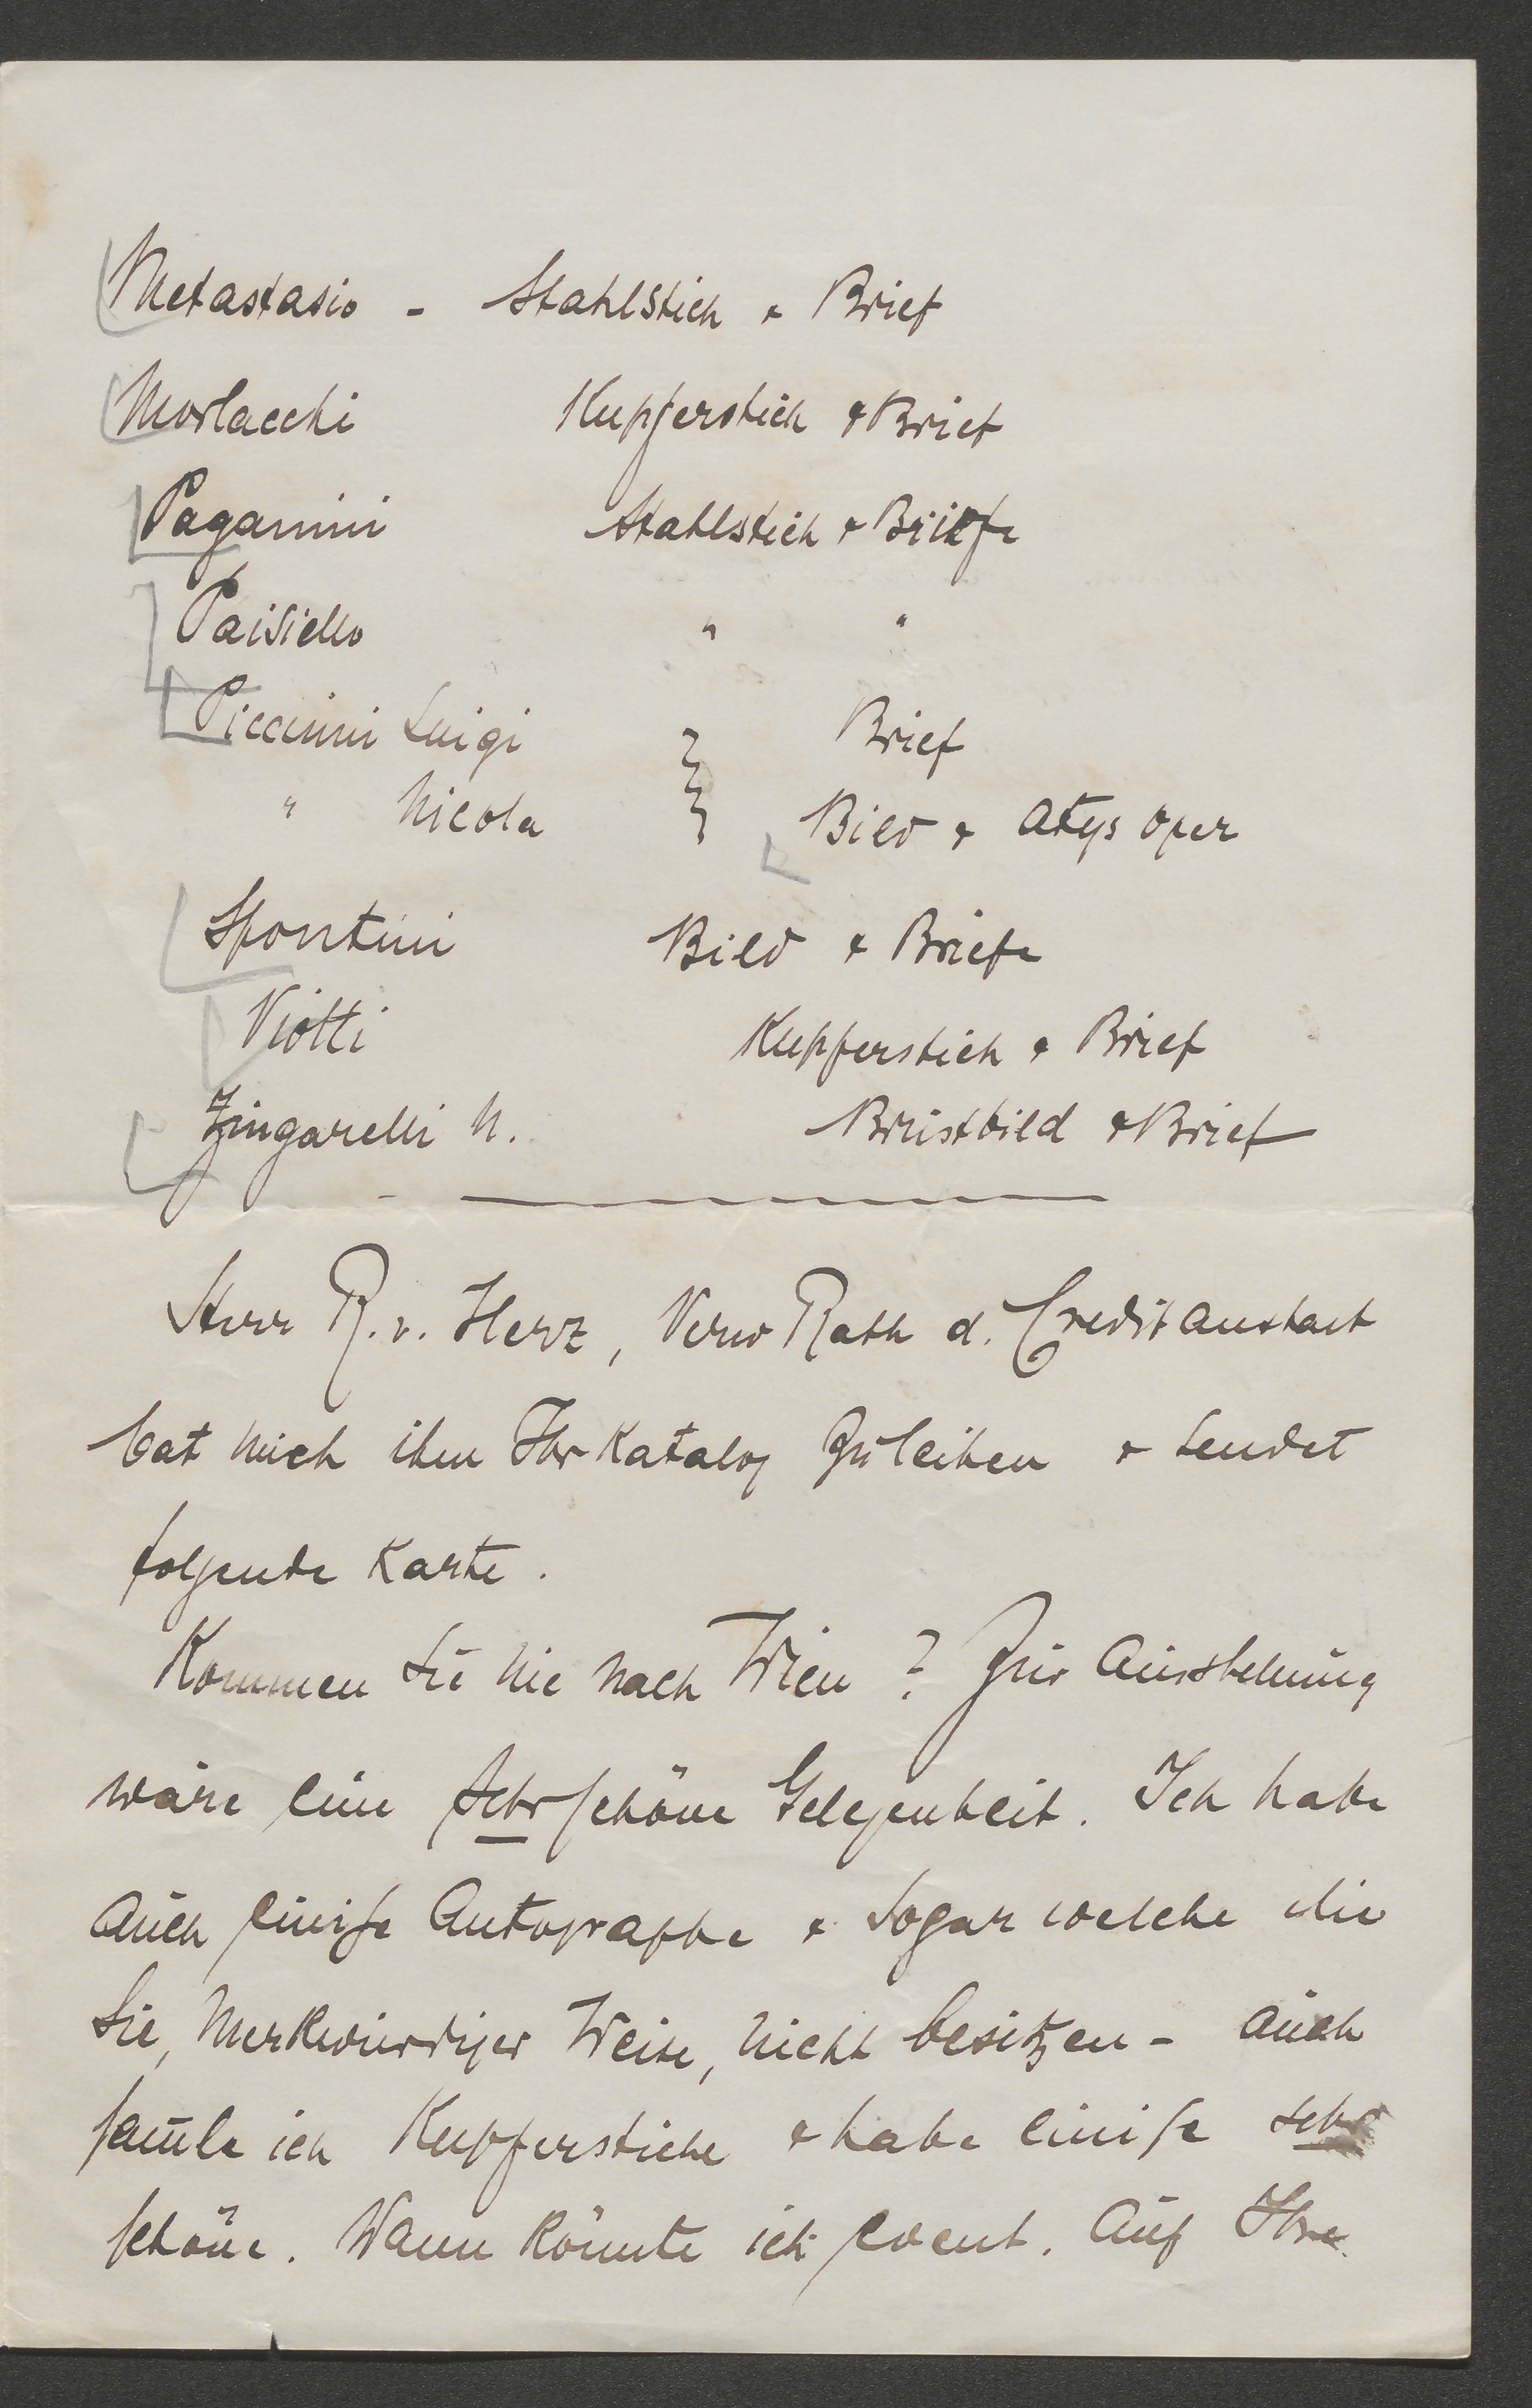 Metastasio - Stahlstich & Brief
Morlacchi Kupferstich & Brief
Paganini Stahlstich & Briefe
Paisiello " "
Piccinni Luigi } Brief
" Nicola } Bild & Atys Oper
Spontini Bild & Briefe
Viotti Kupferstich & Brief
Zingarelli N. Brustbild & Brief
Herr R. v. Herz, Verw Rath d. Creditanstalt
bat mich ihm Ihr Katalog zu leihen & sendet
folgende Karte.
Kommen Sie nie nach Wien? Zur Ausstellung
wäre eine sehr schöne Gelegenheit. Ich habe
auch einige Autographe & sogar welche die
Sie, merkwürdiger Weise, nicht besitzen - auch
sam̄le ich Kupferstiche & habe einige sehr
schöne. Wann könnte ich event. auf Ihre